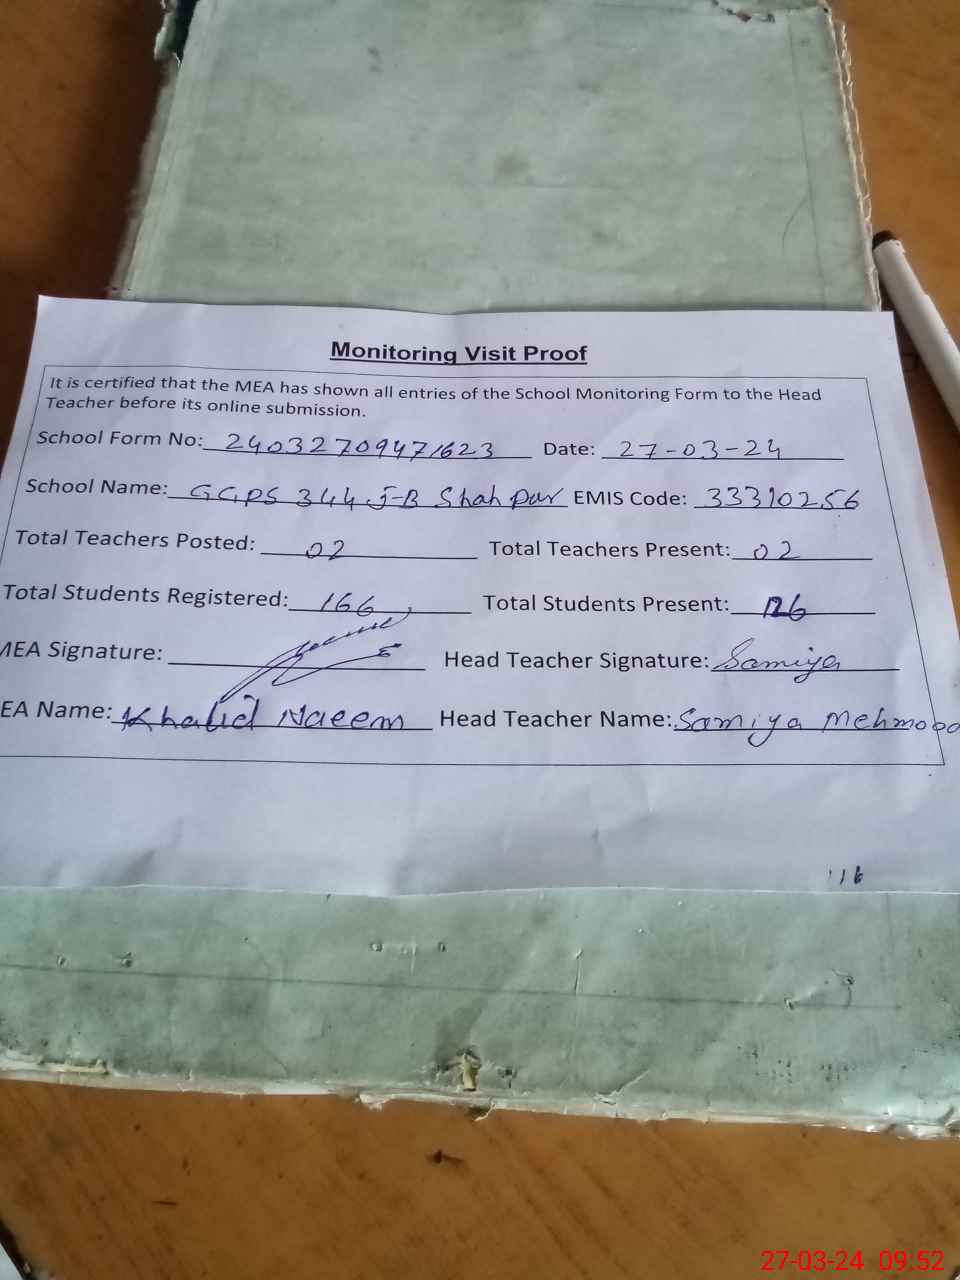 Monitoring Visit Proof
It is certified that the MEA has shown all entries of the School Monitoring Form to the Head
Teacher before its online submission.
School Form No: 24032709471623 Date: 27-03-24
School Name: GGPS 344 J-B Shah Pur EMIS Code: 33310256
Total Teachers Posted: 02 Total Teachers Present: 02
Total Students Registered: 166 Total Students Present:
MEA Signature: Head Teacher Signature: Samiya
EA Name: Khalid Naeem Head Teacher Name: Samiya Mehmood
116
27-03-24 09:52